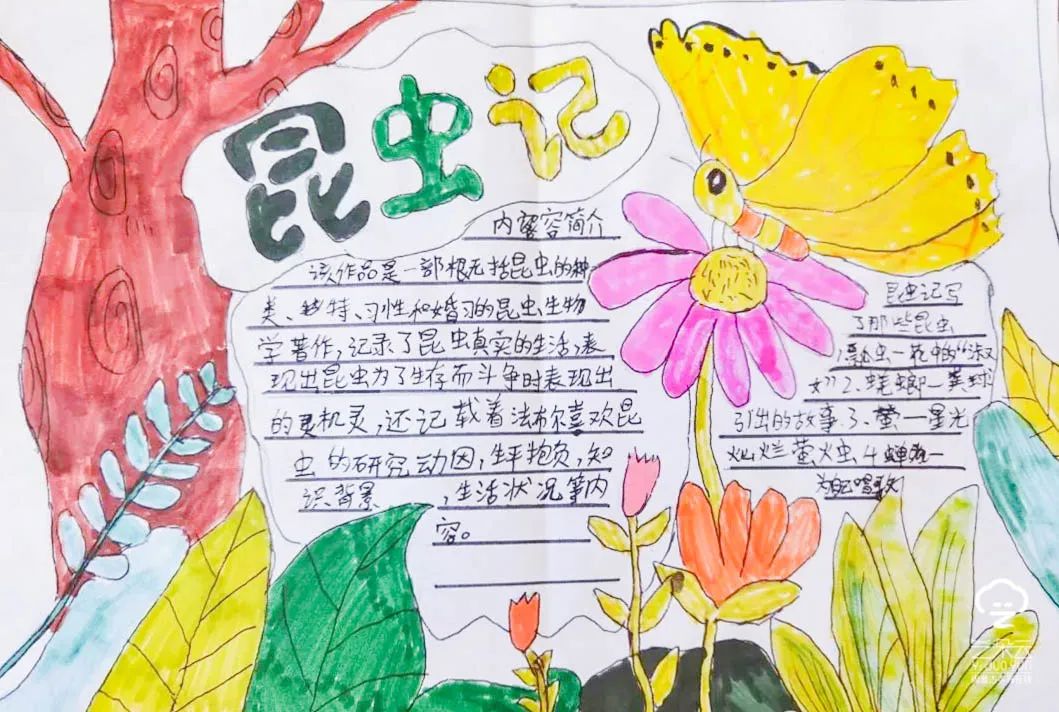 昆虫记
内容容简介
该作品是一部概括昆虫的种
类、特、习性和婚习的昆虫生物
学著作，记录了昆虫真实的生活，表
现出昆虫为了生存而斗争时表现出
的灵机灵，还记载着法布尔喜欢昆
虫的研究动因，生平抱负，知
识背景，生活状况等内
容。
昆虫记写
了那些昆虫
一花中的“淑
女”2、蜣螂一粪球
引出的故事3、萤一星光
灿烂萤火虫4蝉
唱歌